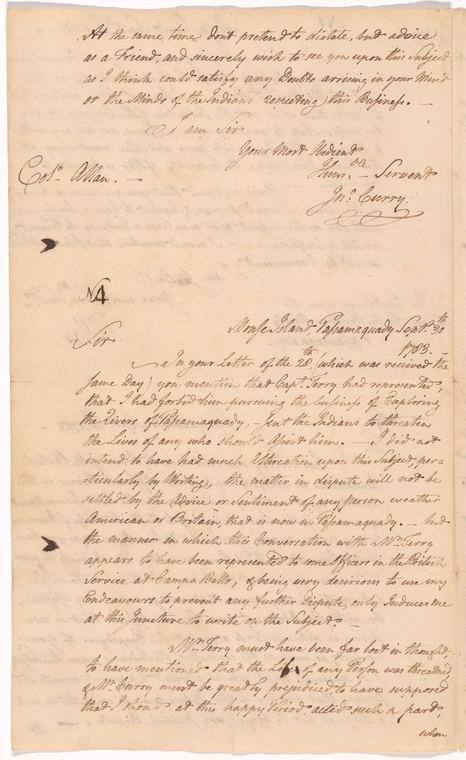 At the same time don't pretend to dictate, but advice
as a Friend, and sincerely wish to see you upon this Subject
as I think could satisfy any Doubts arrising in your Mind
or the Minds of the Indians respecting this Business. —
I am Sir
Your Most Obedient
Hum. Servent
Jno. Curry.
Coln. Allan. —
N4
Moose Island, Passamaquady Sept. 30th
1783.
Sir
In your Letter of the 28th. (which was received the
same Day) you mention that Capt. Terry had represented,
that I had forbid him pursuing the business of Exploring
the Rivers of Passamaquady, — sent the Indians to threaten
the Lives of any who should assist him. — I did not
intend to have had much Altercation upon this Subject, per=
ticularly by Writing, the matter in dispute will not be
settled by the Advice or Sentiment of any person weather
American or Britain, that is now in Passamaquady. — but
the manner in which this Conversation with Mr. Terry
appears to have been represented to some Officers in the British
Service at Campo Bello, & being very desirious to use my
Endeavours to prevent any further Dispute, only Induces me
at this Juncture to write on the Subject. —
Mr. Terry must have been far lost in thought,
to have mentioned that the Life of any Person was threatned,
& Mr. Curry must be greatly prejudiced, to have supposed
that I shoud at this happy Period, acted such a part,
when